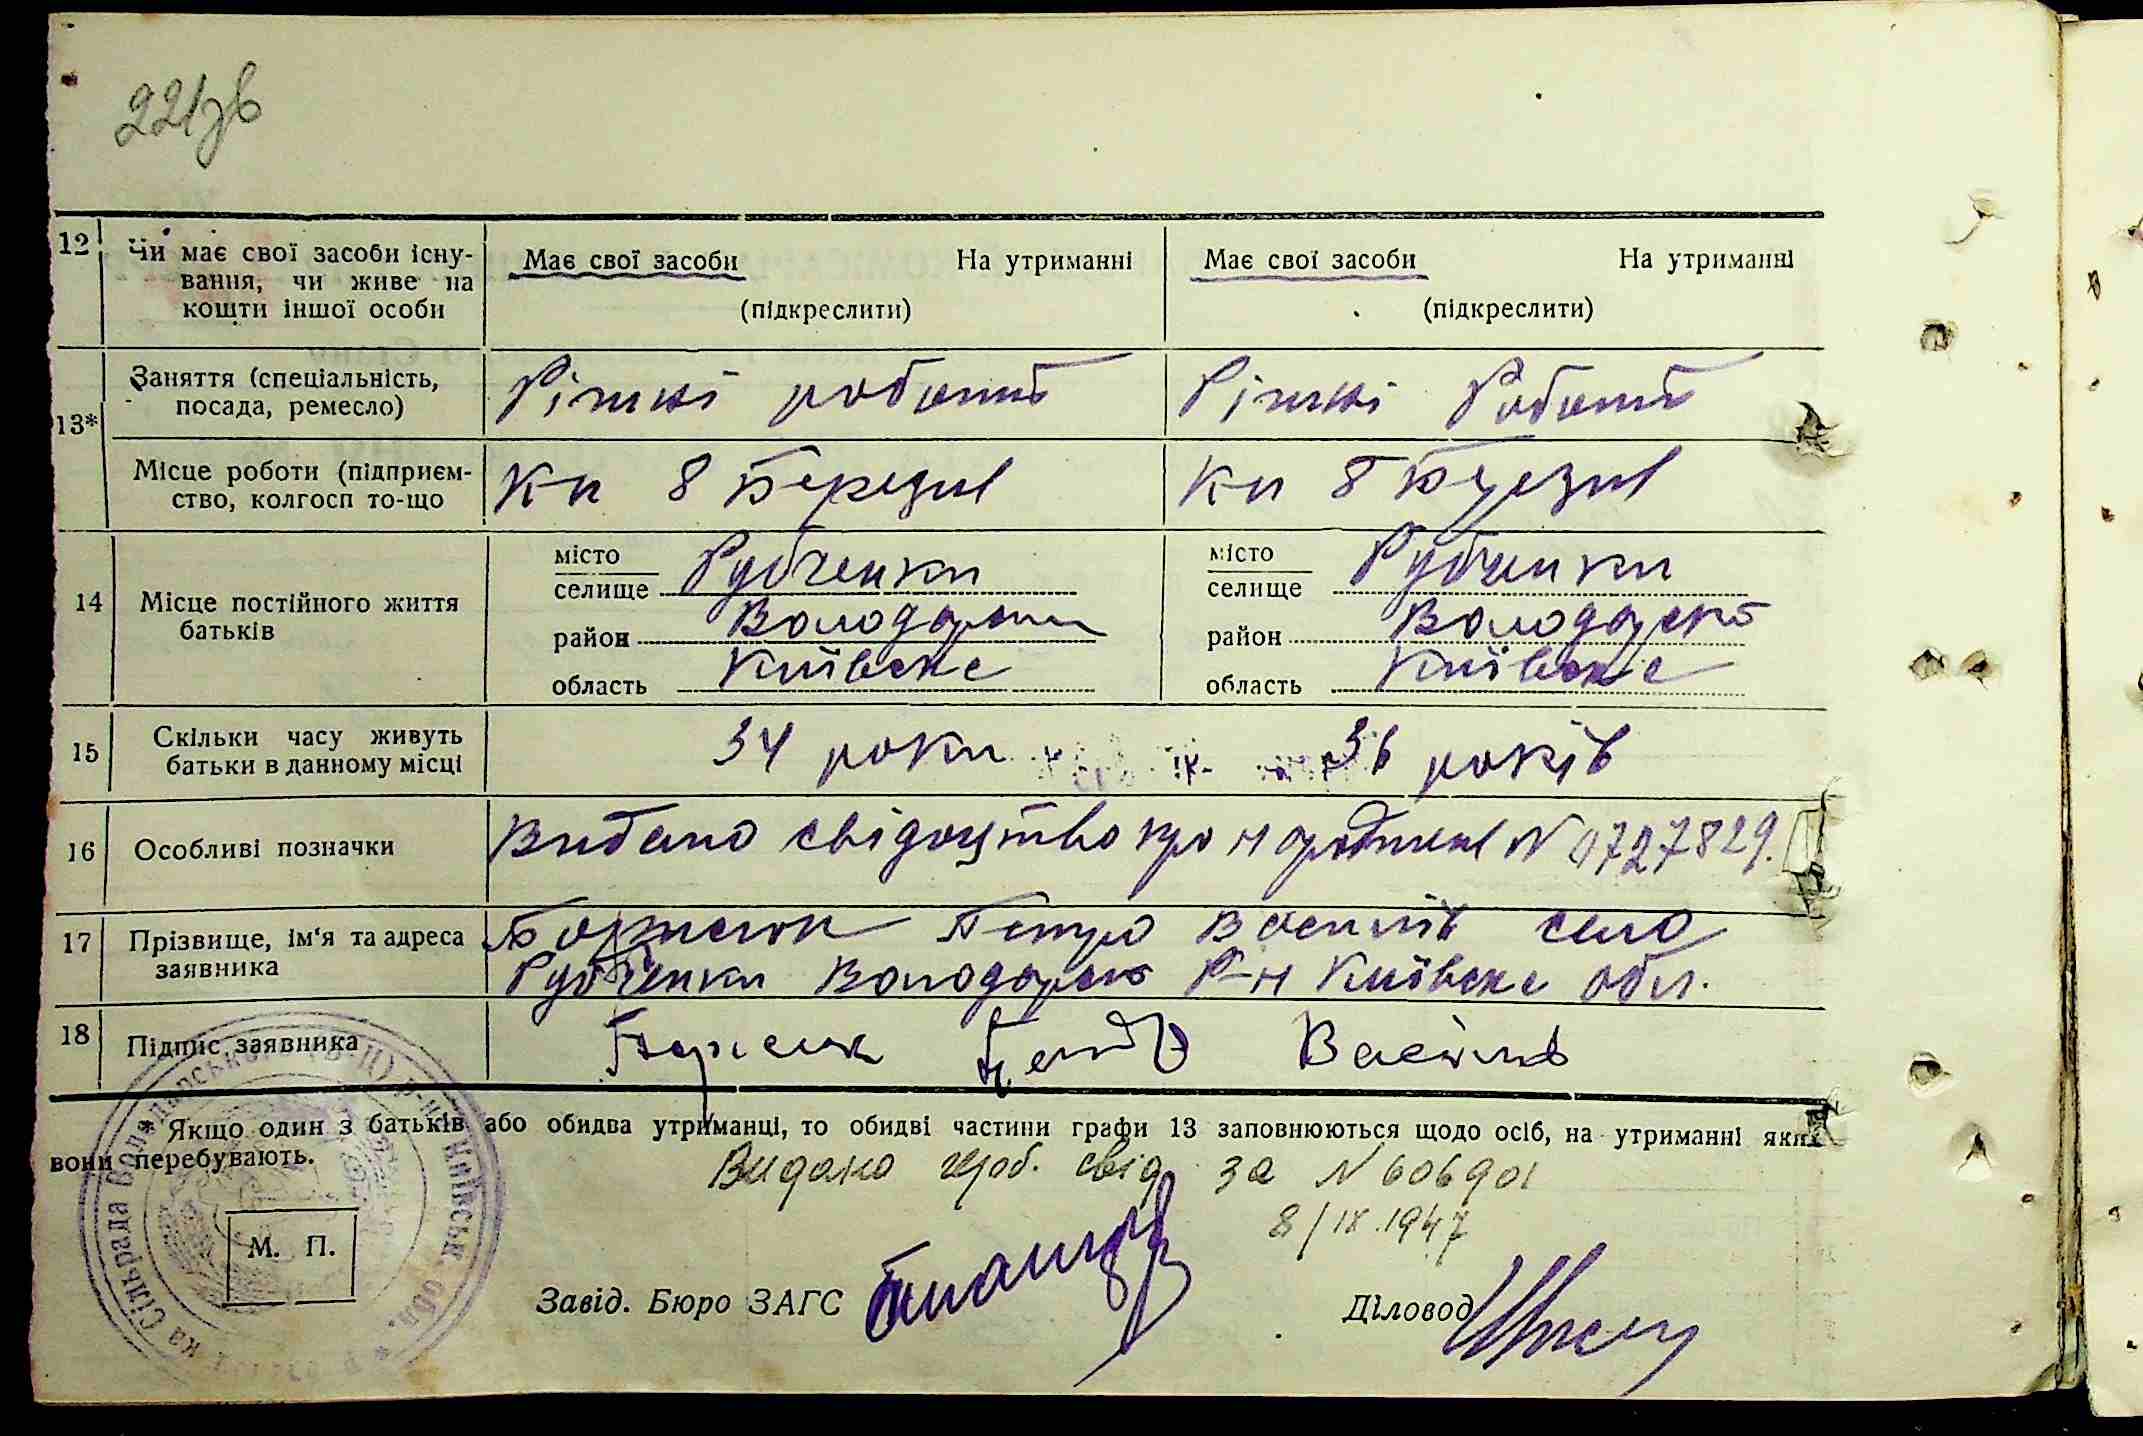 221зв
12 Чи має свої засоби існу-
вання, чи живе на
кошти іншої особи
Має свої засоби На утриманні
(підкреслити)
Має свої засоби На утриманні
(підкреслити)
13*
Заняття (спеціальність,
посада, ремесло)
Різні роботи
Різні Роботи
Місце роботи (підприєм-
ство, колгосп то-що
Кп 8 Березня
Кп 8 Березня
14 Місце постійного життя
батьків
місто
селище Рубченки
район Володарськ
область Київська
місто
селище Рубченки
район Володарско
область Київське
15 Скільки часу живуть
батьки в данному місці
34 роки
36 років
16 Особливі позначки
Видано свідоцтво про народження N 0727829.
17 Прізвище, ім'я та адреса
заявника
Борисюк Петро Василів село
Рубченки Володарско Р-н Київске обл.
18 Підпис заявника
Борисюк Петро Василів
* Якщо один з батьків або обидва утриманці, то обидві частини графи 13 заповнюються щодо осіб, на утриманні яких
вони перебувають.
Видано свід за N 606901
8/IX.1947
М. П.
Завід. Бюро ЗАГС
Діловод